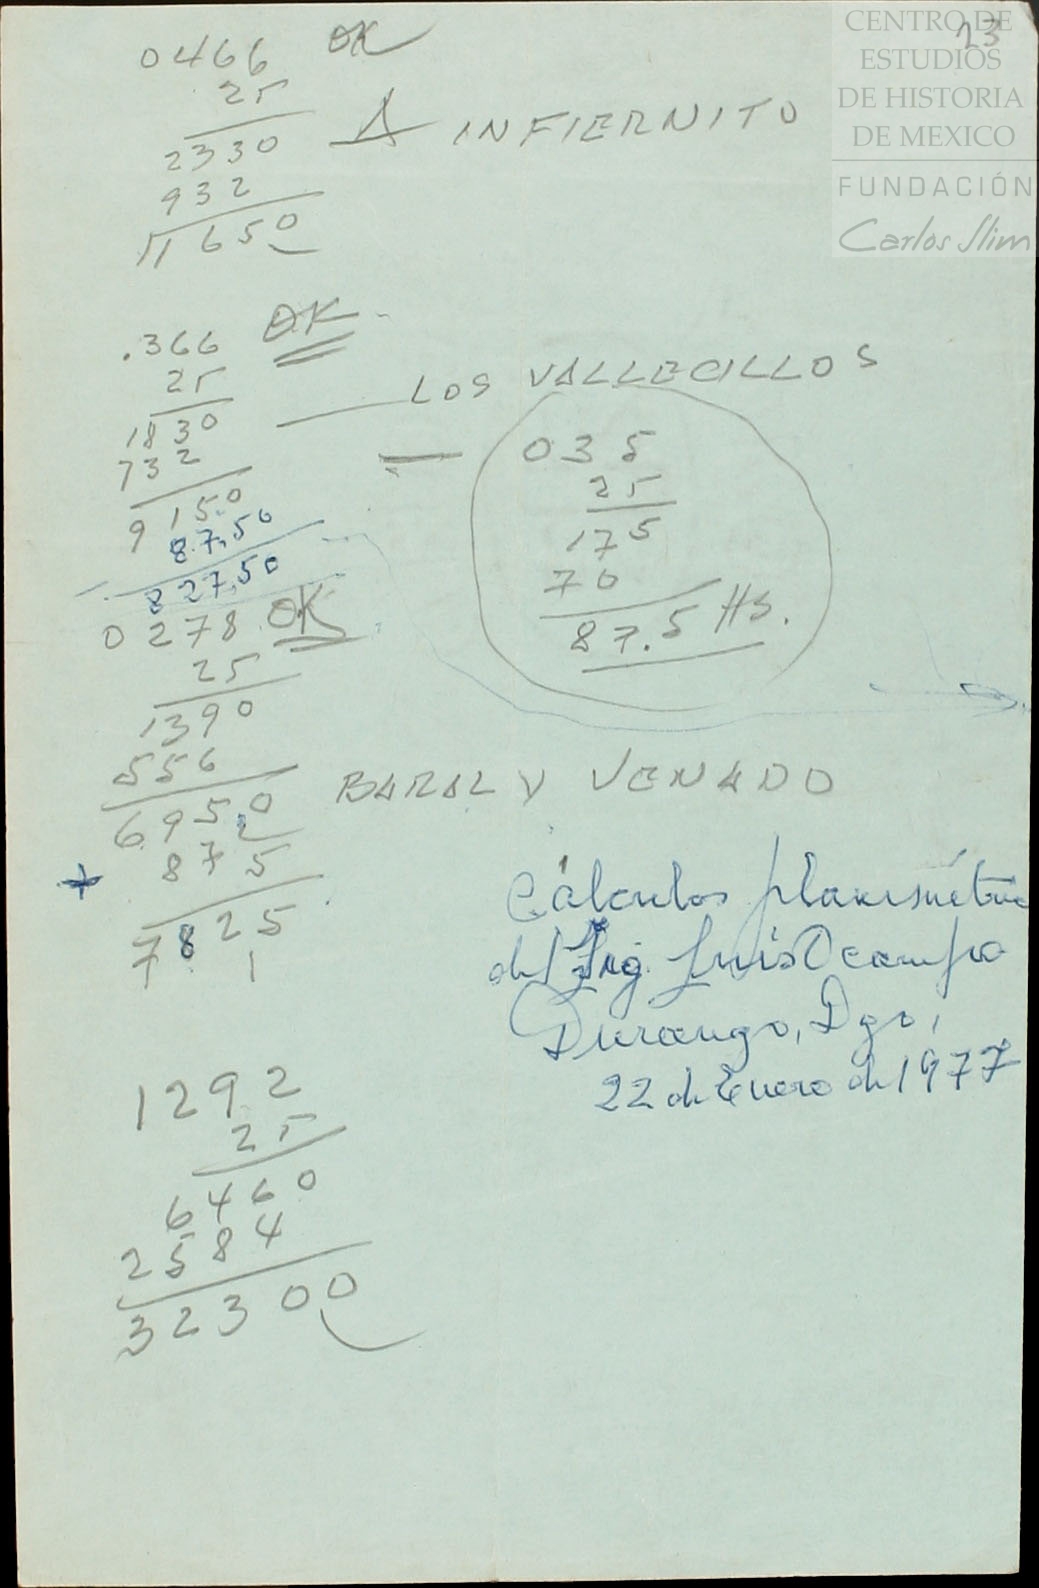 CENTRO DE
ESTUDIOS
DE HISTORIA
DE MEXICO
FUNDACIÓN
Carlos Slim
23
0466 OK
25
2330
932
11650
INFIERNITO
.366 OK
25
1830
732
9150
87.50
827.50
LOS VALLECILLOS
035
25
175
70
87.5 HS.
0278 OK
25
1390
556
695.0
+ 875
7825
1
BARAL Y VENADO
Cálculos planimétric
del Ing. Luis Ocampo
Durango, Dgo,
22 de Enero de 1977
1292
25
6460
2584
32300